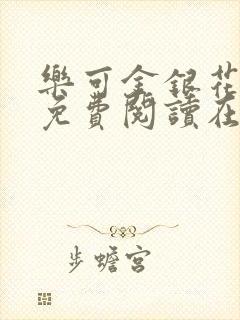 樂可金銀花
免費閱讀在
步蟾宮